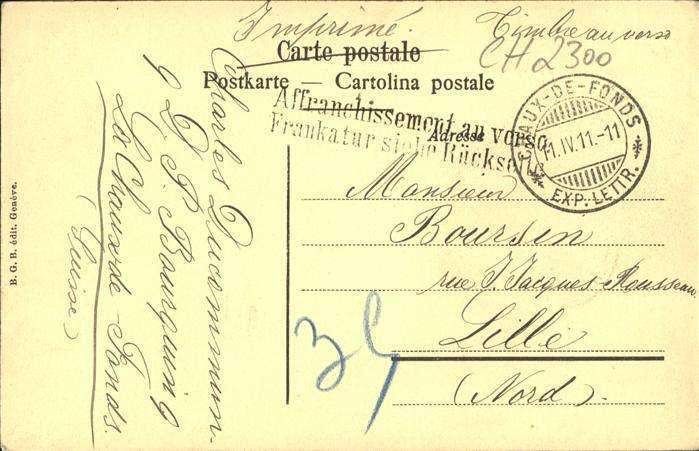 Imprimé. Timbre au verso
CH 2300
Carte postale
Postkarte — Cartolina postale
Affranchissement au verso
Frankatur siehe Rückseite
Adresse
CHAUX-DE-FONDS
11.IV.11.-11
EXP. LETTR.
Monsieur
Boursin
rue J. Jacques Rousseau
Lille
(Nord)
Charles Ducommun.
9 D. P. Bourquin 9
La Chaux-de-Fonds.
(Suisse)
B. G. B. édit. Genève.